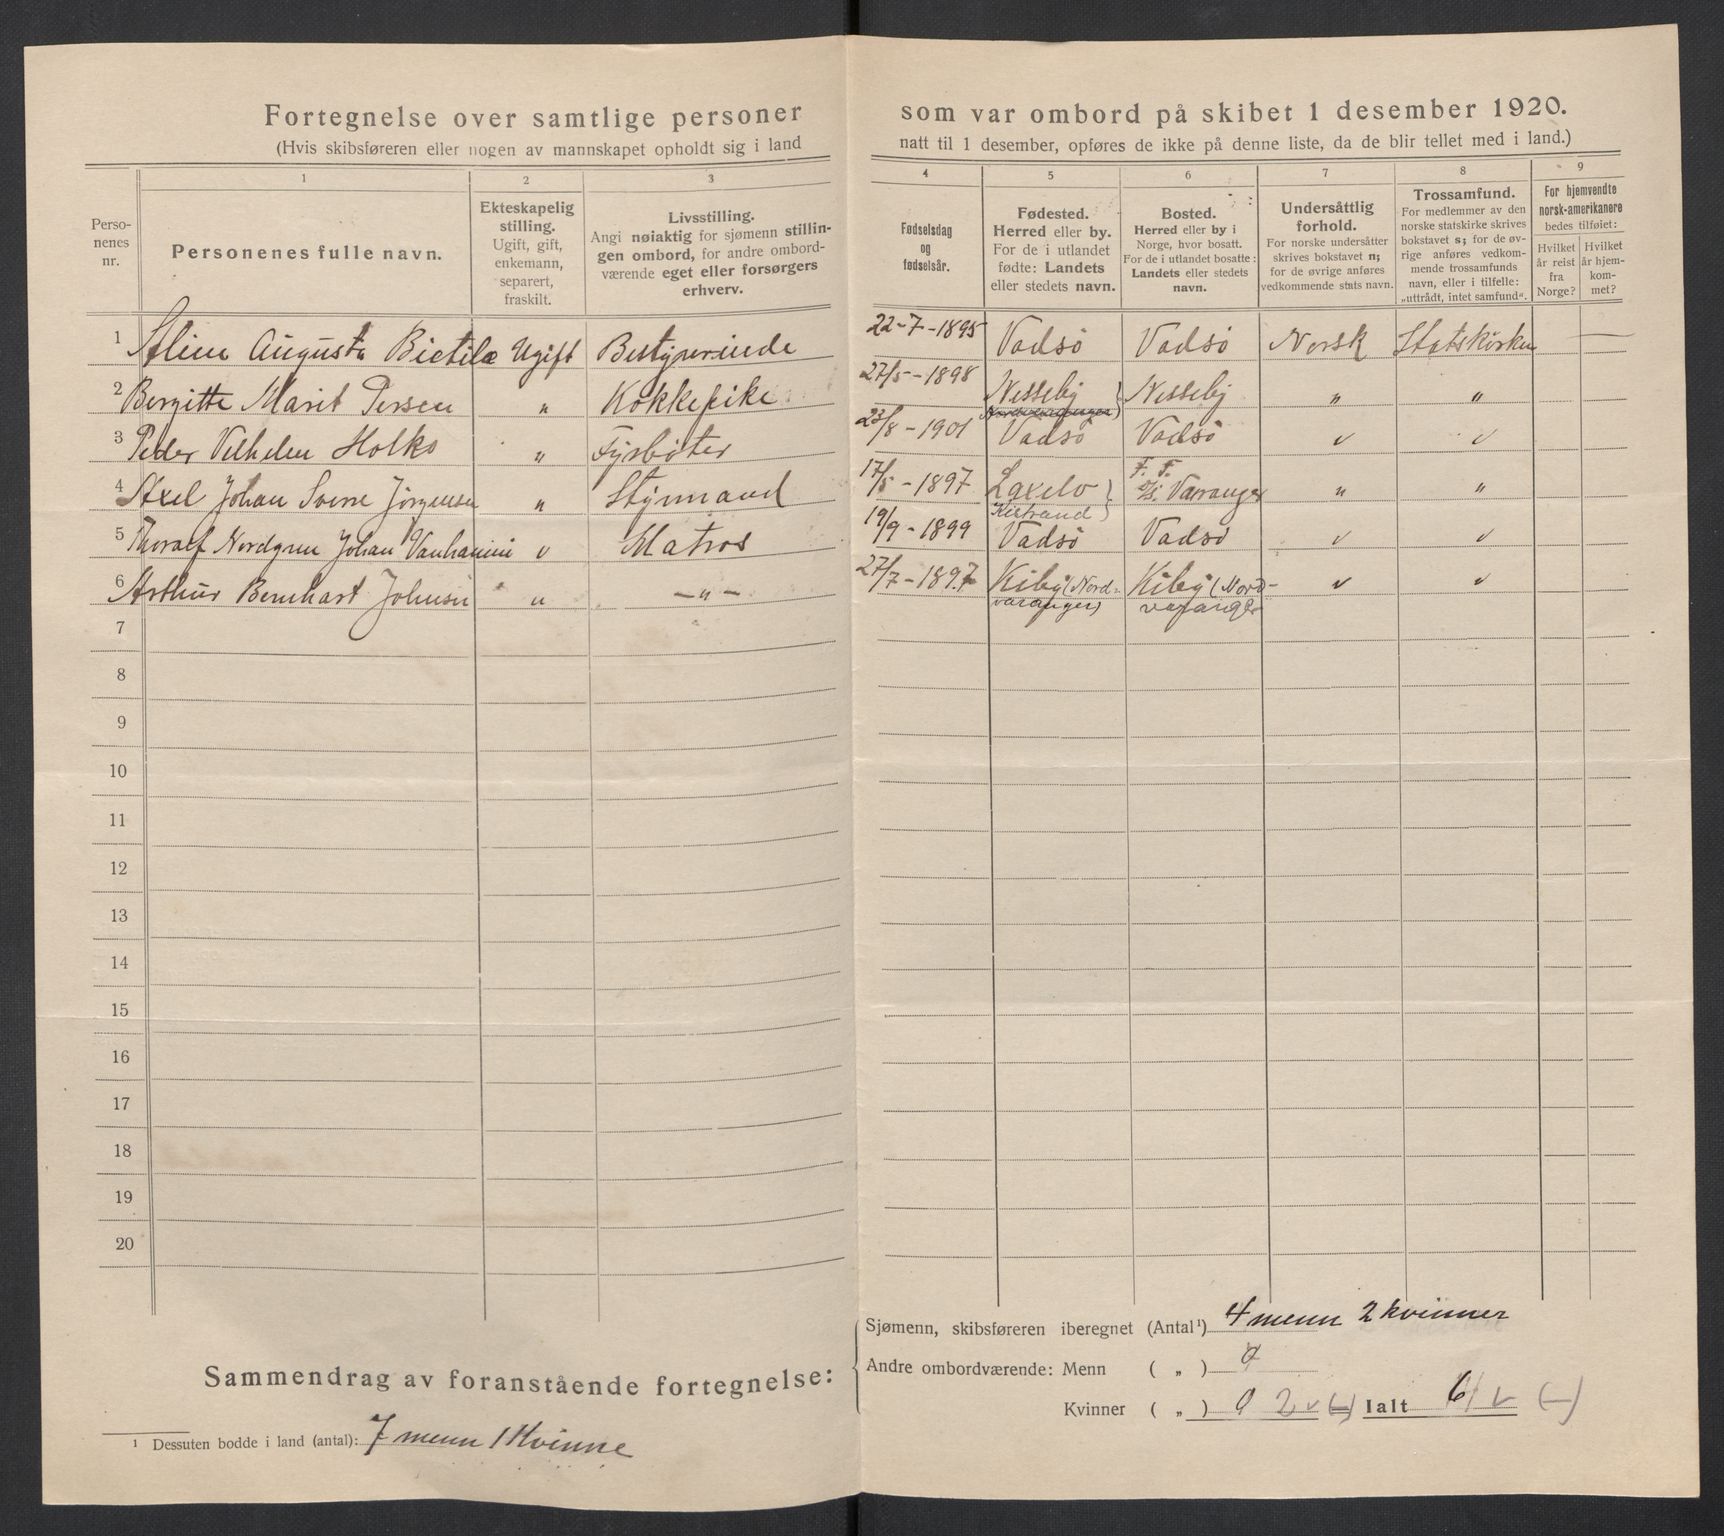 Fortegnelse over samtlige personer som var ombord på skibet 1 desember 1920.
(Hvis skibsføreren eller nogen av mannskapet opholdt sig i land natt til 1 desember, opføres de ikke på denne liste, da de blir tellet med i land.)
Perso-
nenes
nr.
1
Personenes fulle navn.
2
Ekteskapelig
stilling.
Ugift, gift,
enkemann,
separert,
fraskilt.
3
Livsstilling.
Angi nøiaktig for sjømenn stillin-
gen ombord, for andre ombord-
værende eget eller forsørgers
erhverv.
4
Fødselsdag
og
fødselsår.
5
Fødested.
Herred eller by.
For de i utlandet
fødte: Landets
eller stedets navn.
6
Bosted.
Herred eller by i
Norge, hvor bosatt.
For de i utlandet bosatte:
Landets eller stedets
navn.
7
Undersåttlig
forhold.
For norske undersåtter
skrives bokstavet n;
for de øvrige anføres
vedkommende stats navn.
8
Trossamfund.
For medlemmer av den
norske statskirke skrives
bokstavet s; for de øv-
rige anføres vedkom-
mende trossamfunds
navn, eller i tilfelle:
„uttrådt, intet samfund“.
9
For hjemvendte
norsk-amerikanere
bedes tilføiet:
Hvilket
år reist
fra
Norge?
Hvilket
år hjem-
kom-
met?
1 Aline Augusta Bietilæ Ugift Bestyrerinde 22-7-1895 Vadsö Vadsö Norsk Statskirken
2 Bergitte Marit Persen „ Kokkepike 27/5-1898 Nesseby } Nesseby „ „
Nordvaranger
3 Peder Vilhelm Holko „ Fyrbøter 23/8-1901 Vadsö Vadsö „ „
4 Axel Johan Sverre Jörgensen „ Styrmand 17/5-1897 Laxelv } F. F. D/S Varanger „ „
Kistrand
5 Thoralf Nordgren Johan Vanhanini „ Matros 19/9-1899 Vadsö Vadsö „ „
6 Arthur Bernhart Johnsen „ -„- 27/7-1897 Kiby (Nord- Kiby (Nord- „ „
varanger) varanger
7
8
9
10
11
12
13
14
15
16
17
18
19
20
Sammendrag av foranstående fortegnelse:
Sjømenn, skibsføreren iberegnet (Antal¹) 4 menn 2 kvinner
Andre ombordværende: Menn ( „ ) 0
Kvinner ( „ ) 0 2 v (-) Ialt 6 v (-)
¹ Dessuten bodde i land (antal): 7 menn 1 Kvinne